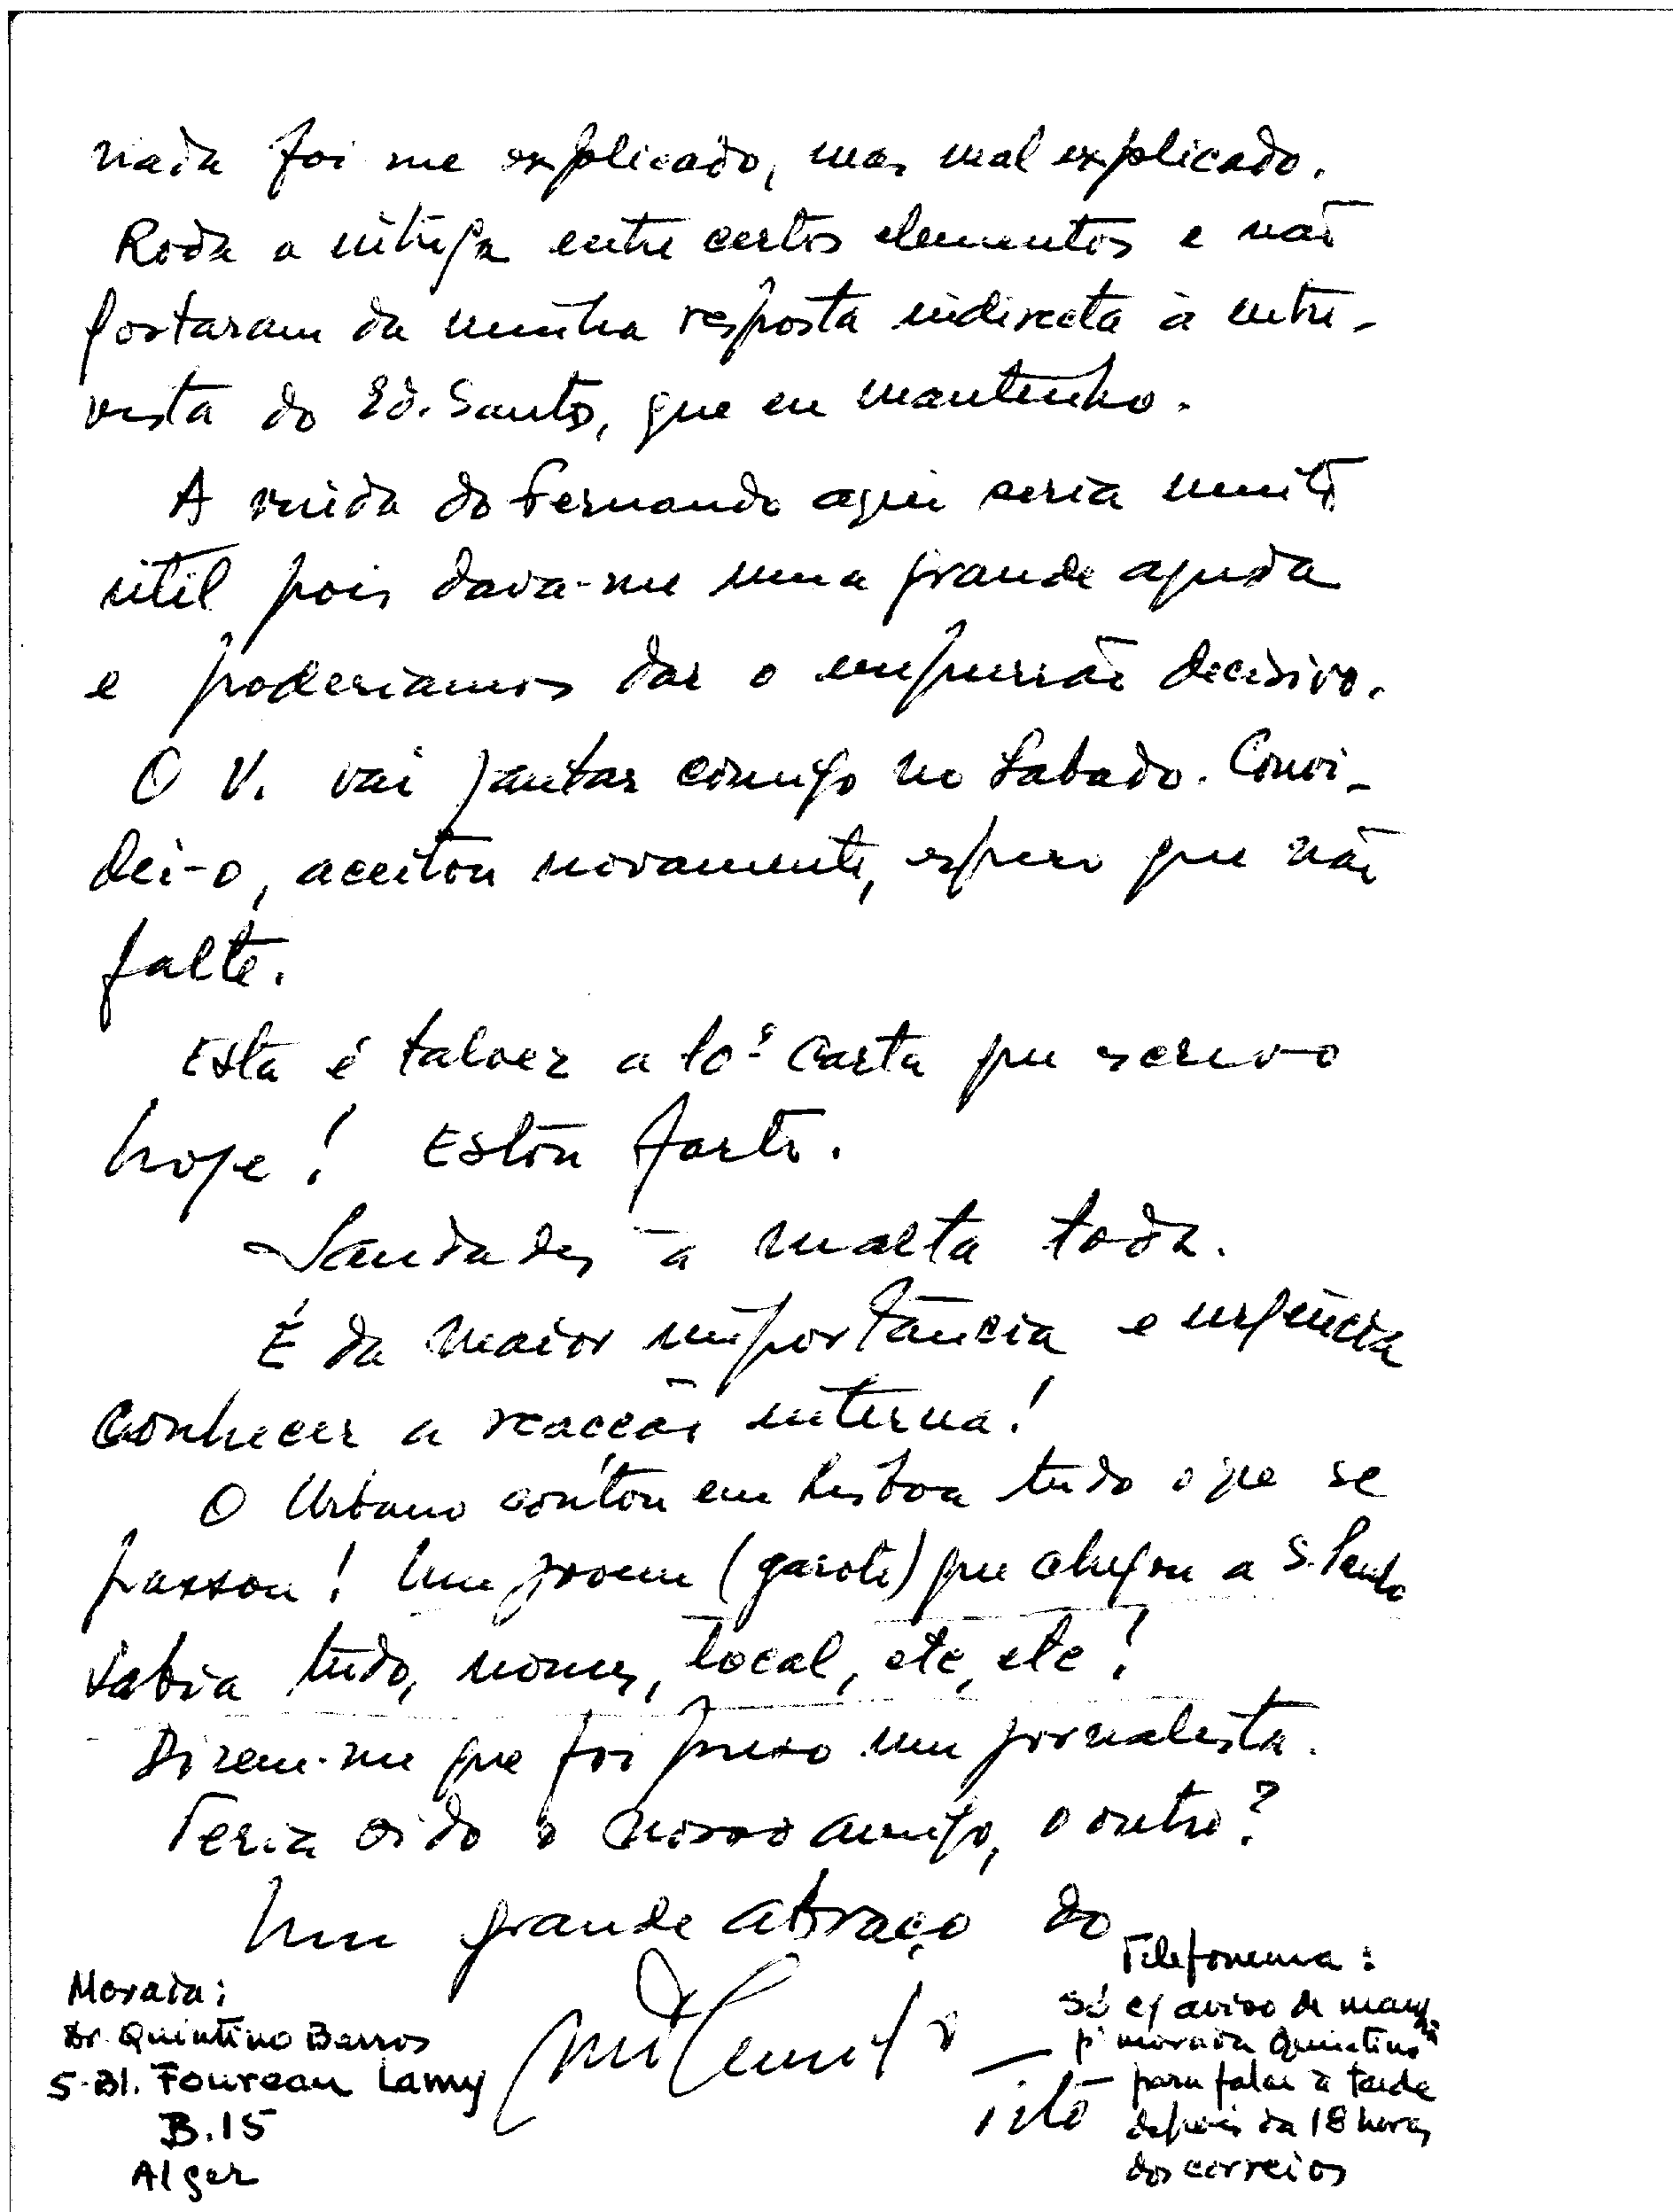 nada foi me explicado, mas mal explicado.
Roda a intriga entre certos elementos e não
gostaram da minha resposta indirecta à entre-
vista do Ed. Santos, que eu mantenho.
A vinda do Fernando aqui seria muito
útil pois dava-me uma grande ajuda
e poderiamos dar o empurrão decisivo.
O V. vai jantar comigo no Sabado. Convi-
dei-o, aceitou novamente, espero que não
falte.
Esta é talvez a 10ª carta que escrevo
hoje! Estou farto.
Saudades à malta toda.
É da maior importância e urgência
conhecer a reacção interna!
O Urbano contou em Lisboa tudo o que se
passou! Um jovem (garoto) que chegou a S. Paulo
sabia tudo, nomes, local, etc, etc!
Dizem-me que foi preso um jornalista.
Teria sido o nosso amigo, o outro?
Um grande abraço do
Morada:
Dr. Quintino Barros
5-Bl. Foureau Lamy
B.15
Alger
Tito
Telefonema:
só c/ aviso de manhã
p' morada Quintino
para falar à tarde
depois da 18 horas
dos correios